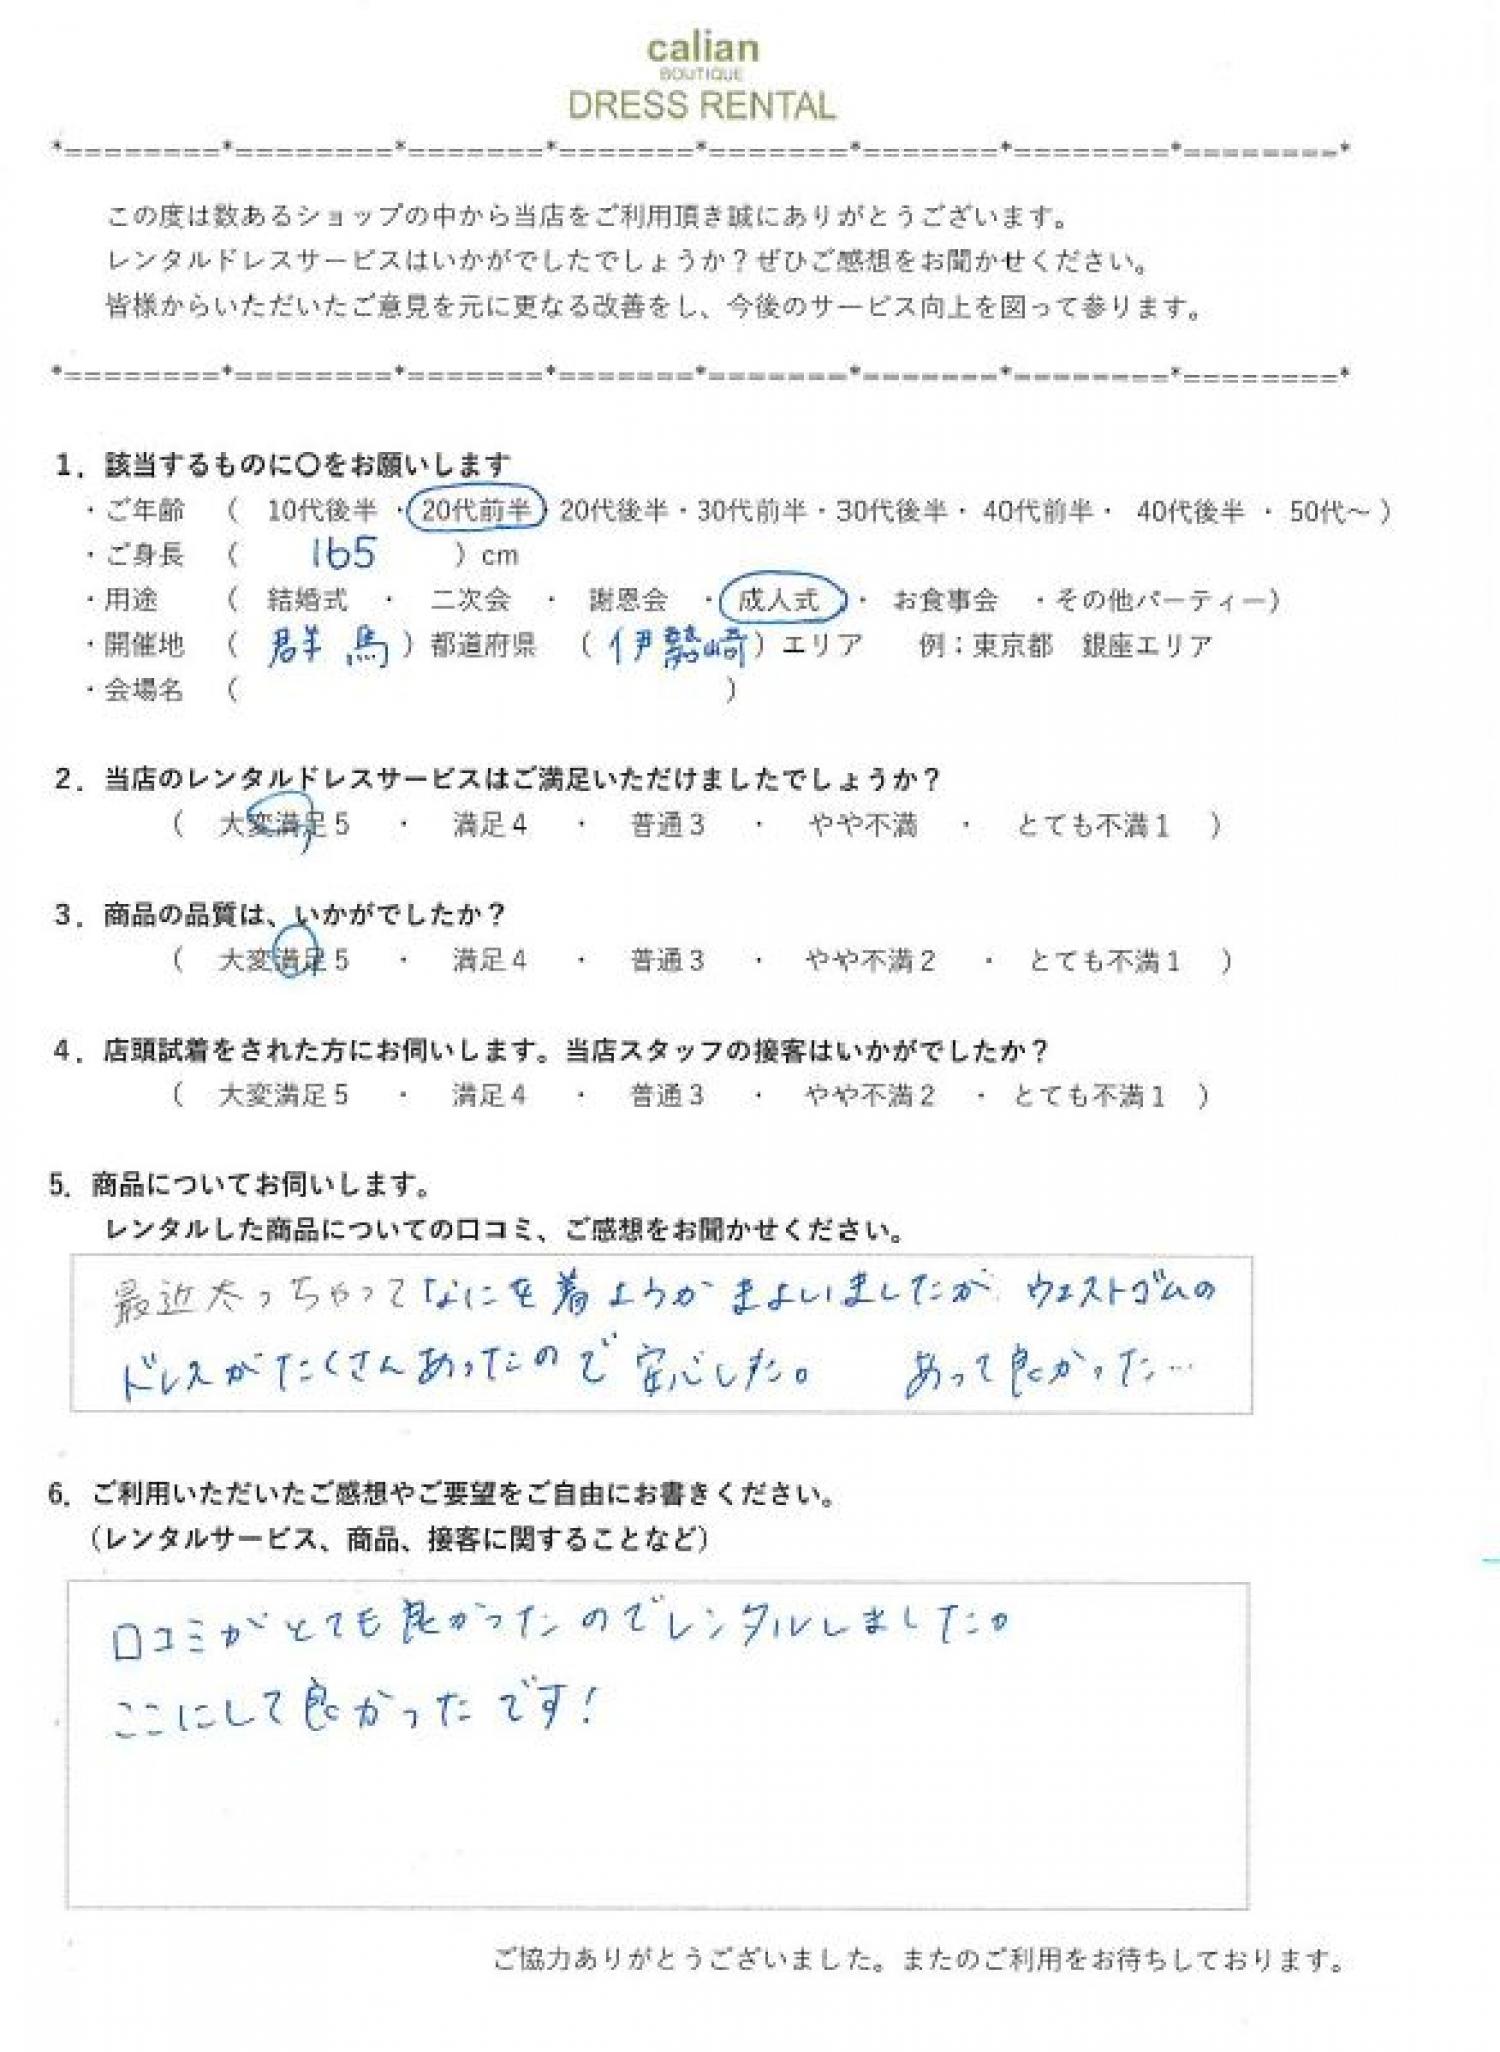 calian
BOUTIQUE
DRESS RENTAL
*========*========*=======*=======*=======*=======*========*========*
この度は数あるショップの中から当店をご利用頂き誠にありがとうございます。
レンタルドレスサービスはいかがでしたでしょうか？ぜひご感想をお聞かせください。
皆様からいただいたご意見を元に更なる改善をし、今後のサービス向上を図って参ります。
*========*========*=======*=======*=======*=======*========*========*
1．該当するものに〇をお願いします
・ご年齢 （ 10代後半 ・ 20代前半・20代後半・30代前半・30代後半・ 40代前半・ 40代後半 ・ 50代～ ）
・ご身長 （ 165 ）cm
・用途 （ 結婚式 ・ 二次会 ・ 謝恩会 ・ 成人式 ・ お食事会 ・その他パーティー）
・開催地 （ 群馬 ）都道府県 （ 伊勢崎 ）エリア 例：東京都 銀座エリア
・会場名 （ ）
2．当店のレンタルドレスサービスはご満足いただけましたでしょうか？
（ 大変満足5 ・ 満足4 ・ 普通3 ・ やや不満 ・ とても不満1 ）
3．商品の品質は、いかがでしたか？
（ 大変満足5 ・ 満足4 ・ 普通3 ・ やや不満2 ・ とても不満1 ）
4．店頭試着をされた方にお伺いします。当店スタッフの接客はいかがでしたか？
（ 大変満足5 ・ 満足4 ・ 普通3 ・ やや不満2 ・ とても不満1 ）
5．商品についてお伺いします。
レンタルした商品についての口コミ、ご感想をお聞かせください。
最近太っちゃってなにを着ようかまよいましたが ウエストゴムの
ドレスがたくさんあったので安心した。 あって良かった…
6．ご利用いただいたご感想やご要望をご自由にお書きください。
（レンタルサービス、商品、接客に関することなど）
口コミがとても良かったのでレンタルしました。
ここにして良かったです！
ご協力ありがとうございました。またのご利用をお待ちしております。